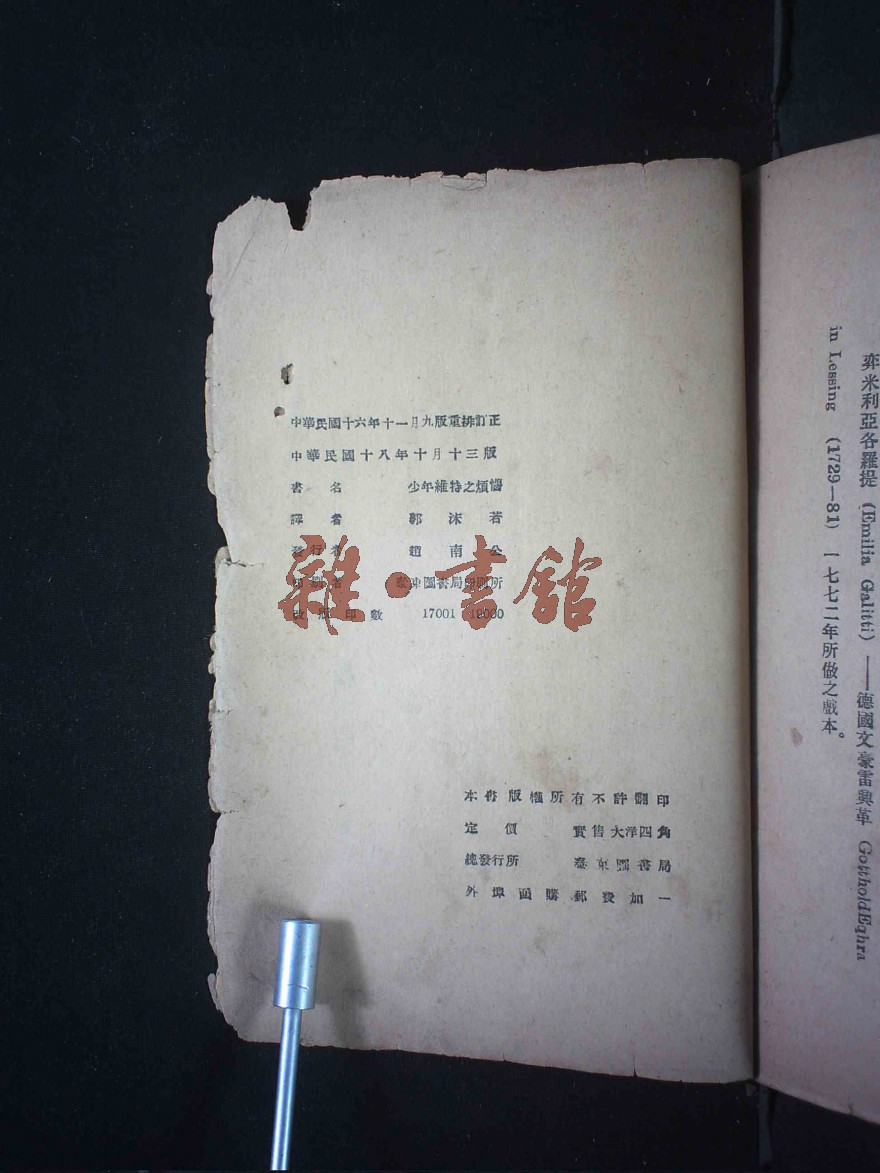 中華民國十六年十一月九版重排訂正
中華民國十八年十月十三版
書名 少年維特之煩惱
譯者 郭沫若
發行者 趙南公
印刷者 泰東圖書局印刷所
改版印數 17001 19000
雜·書館
本書版權所有不許翻印
定價 實售大洋四角
總發行所 泰東圖書局
外埠函購郵費加一
弈米利亞各羅提 (Emilia Galitti) ——德國文豪雷興革 GottholdEqhra
in Lessing (1729—81) 一七七二年所做之戲本。